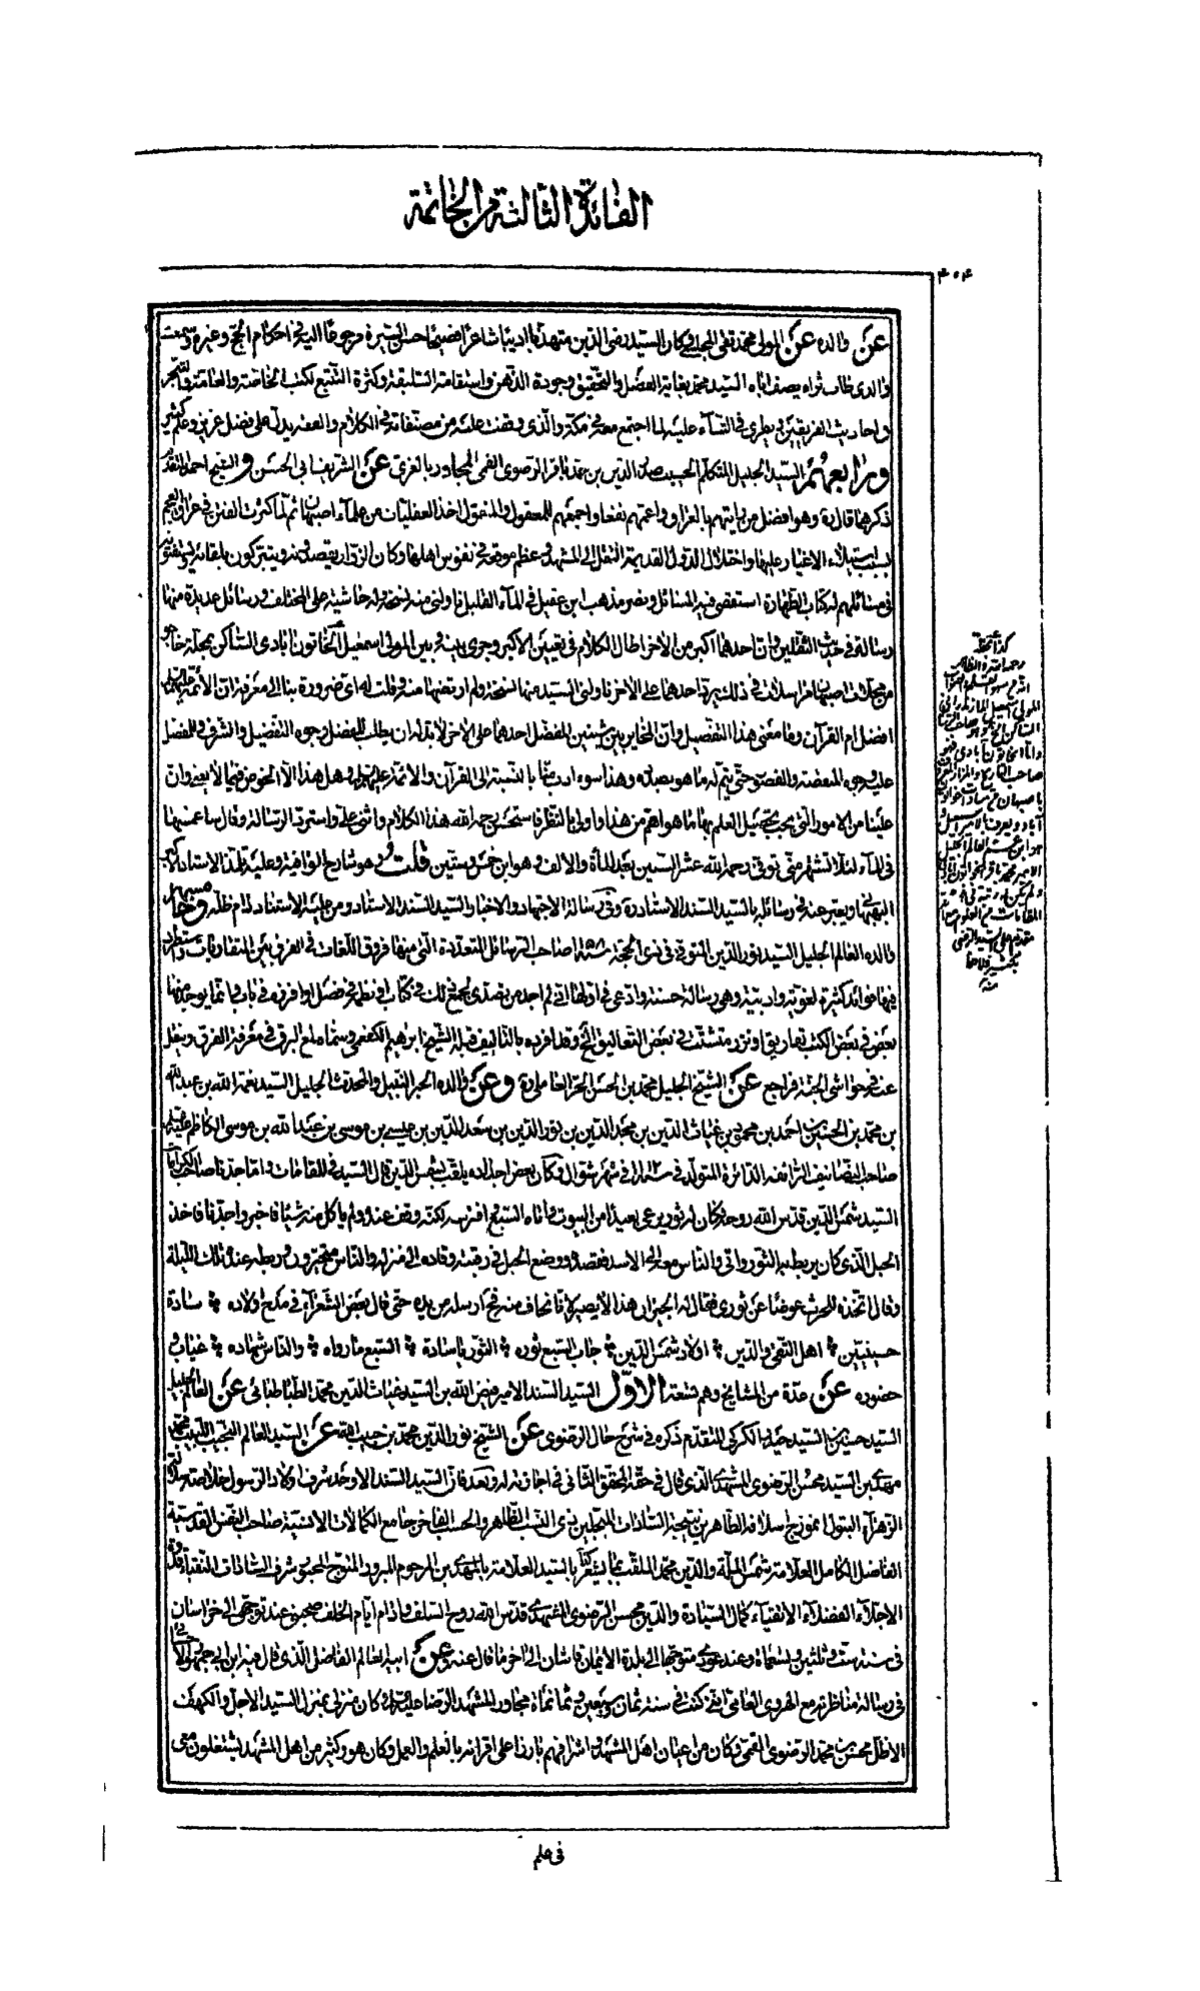 الفائدة الثالثة من الخاتمة
٤٠٤
عن والده عن المولى محمد تقي المجلسي وكان السيد رضي الدين متهذبا اديبا شاعرا فصيحا حسن السيرة مرجوعا اليه في احكام الحج وغيره وسمعت
والدي طاب ثراه يصف اباه السيد محمد بغاية الفضل والتحقيق وجودة الذهن واستقامة السليقة وكثرة التتبع لكتب الخاصة والعامة والتبحر
في احاديث الفريقين ويطري في الثناء عليه لما اجتمع معه في مكة والذي وقفت عليه من مصنفاته في الكلام والفقه يدل على فضل غزير وعلم كثير
ورابعهم السيد الجليل المتكلم الحسيب صدر الدين بن محمد باقر الرضوي القمي المجاور بالغري عن الشريف ابي الحسن والشيخ احمد المتقدم
ذكرهما قال وهو افضل من رايتهم بالعراق واعمهم نفعا واجمعهم للمعقول والمنقول اخذ العقليات من علماء اصبهان ثم لما كثرت الفتن في عراق العجم
بسبب استيلاء الاغيار عليها واختلال الدولة القديمة انتقل الى المشهد وعظم موقعه في نفوس اهلها وكان الزوار يقصدونه ويتبركون بلقائه ويستفتونه
في مسائلهم له كتاب الطهارة استقصى فيه المسائل ونصر مذهب ابن عقيل في الماء القليل ناولني منه نسخة وله حاشية على المختلف ورسائل عديدة منها
رسالة في حديث الثقلين وان احدهما اكبر من الاخر اطال الكلام في تعيين الاكبر وجرى بينه وبين المولى اسمعيل الخاتون ابادي الساكن بمحلة خاجو
من محلات اصبهان مراسلات في ذلك يرد احدهما على الاخر ناولني السيد منها نسخة ولم ارتضها منه وقلت له اي ضرورة بنا الى معرفة ان الائمة عليهم السلام
افضل ام القرآن وما معنى هذا التفضيل وان المخاير بين شيئين المفضل احدهما على الاخر لا بد له ان يطلب للمفضل وجوه التفضيل والشرف وللمفضل
عليه وجوه المنقصة والقصور حتى يتم له ما هو بصدده وهذا سوء ادب منا بالنسبة الى القرآن والائمة عليهم السلام وهل هذا الا الخوض فيما لا يعني وان
علينا من الامور التي يجب تحصيل العلم بها ما هو اهم من هذا واولى بالنظر فاستحسن رحمه الله هذا الكلام واثنى علي واسترد الرسالة وقال ساغمسها
في الماء لئلا تشتهر مني توفي رحمه الله عشر الستين بعد المأة والالف وهو ابن خمس وستين قلت وهو شارح الوافية وعليه تلمذ الاستاد الاكبر
البهبهاني ويعبر عنه في رسائله بالسيد السند الاستاد وفي رسالة الاجتهاد والاخبار والسيد السند الاستاد ومن عليه الاستناد دام ظله وخامسهم
والده العالم الجليل السيد نور الدين المتوفى في ذي الحجة سنة ١١٥٨ صاحب الرسائل المتعددة التي منها فروق اللغات في الفرق بين المتقاربات
فيها فوائد كثيرة لغوية وادبية وهي رسالة حسنة وادعى في اولها اني لم اجد من تصدى لجمع ذلك في كتاب او نظمه في فصل او افرزه في باب وانما يوجد منها
بعض في بعض الكتب تفاريق او نزر متشتت في بعض التعاليق الخ وقد افرده بالتاليف قبله الشيخ ابرهيم الكفعمي وسماه لمع البرق في معرفة الفرق وينقل
عنه في حواشي الجنة فراجع عن الشيخ الجليل محمد بن الحسن الحر العاملي وعن والده الحبر النبيل والمحدث الجليل السيد نعمة الله بن عبد الله
بن محمد بن الحسين بن احمد بن محمود بن غياث الدين بن مجد الدين بن نور الدين بن سعد الدين بن عيسى بن موسى بن عبد الله بن موسى الكاظم عليه السلام
صاحب التصانيف الرائقة الدائرة المتولد في في شهر شوال وكان بعض اجداده يلقب بشمس الدين قال السيد في المقامات واما جدنا صاحب الكرامات
السيد شمس الدين قدس الله روحه فكان له ثور يرعى بعيدا من البيوت فاتاه السبع افترسه لكنه وقف عنده ولم ياكل منه شيئا فاخبر واحد جدنا فاخذ
الحبل الذي كان يربط به الثور واتى والناس معه الى الاسد فقصده ووضع الحبل في رقبته وقاده الى منزله والناس متحيرون وربطه عنده تلك الليلة
وقال اتخذه للحرث عوضا عن ثوري فقال له الجيران هذا لا يصير لانا نخاف منه فح ارسله من يده حتى قال بعض الشعراء في مدح اولاده * سادة
حسينيين * اهل التقى والدين * اولاد شمس الدين * جاب السبع ثوره * الثور يا سادة * السبع ما رواه * والناس شهاده * غياب و
حضوره عن عدة من المشايخ وهم تسعة الاول السيد السند الامير فيض الله بن السيد غياث الدين محمد الطباطبائي عن العالم الجليل
السيد حسين بن السيد حيدر الكركي المتقدم ذكره في شرح حال الرضوي عن الشيخ نور الدين محمد بن حبيب الله عن السيد العالم النجيب اللبيب محمد
مهدي بن السيد محسن الرضوي المشهدي الذي قال في حقه المحقق الثاني في اجازته له وبعد فان السيد السند الاوحد شرف اولاد الرسول خلاصة سلالة
الزهراء البتول انموذج اسلافه الطاهرين نتيجة السادات المبجلين ذي النسب الظاهر والحسب الفاخر جامع الكمالات الانسية صاحب النفس القدسية
الفاضل الكامل العلامة شمس الملة والدين محمد الملقب بالسيد العلامة بالمهدي بن المرحوم المبرور المتوج المحبور شرف السادات النقباء قدوة
الاجلاء الفضلاء الاتقياء كمال السيادة والدين محسن الرضوي المشهدي قدس الله روح السلف وادام ايام الخلف صحبني عند توجهي الى خراسان
في سنة ست وثلثين وتسعمأة وعند عودي متوجها الى بلدة الايمان قاشان الى آخر ما قال عنه عن ابيه العالم الفاضل الذي قال فيه ابن ابي جمهور الاحسائي
في رسالة مناظرته مع الهروي العامي اني كنت في سنة ثمان وسبعين وثمانمأة مجاورا لمشهد الرضا عليه السلام وكان منزلي بمنزل السيد الاجل والكهف
الاظل محسن بن محمد الرضوي القمي وكان من اعيان اهل المشهد واشرافهم بارزا على اقرانه بالعلم والعمل وكان هو وكثير من اهل المشهد يشتغلون معي
كذا بخطه
رحمه الله والظاهر
المولى اسمعيل المازندراني
الساكن
صاحب
باصبهان
آباد
العالم الجليل
المقامات من العلوم
مقدم على السيد الرضي
بكثير فلاحظ
منه
في علم